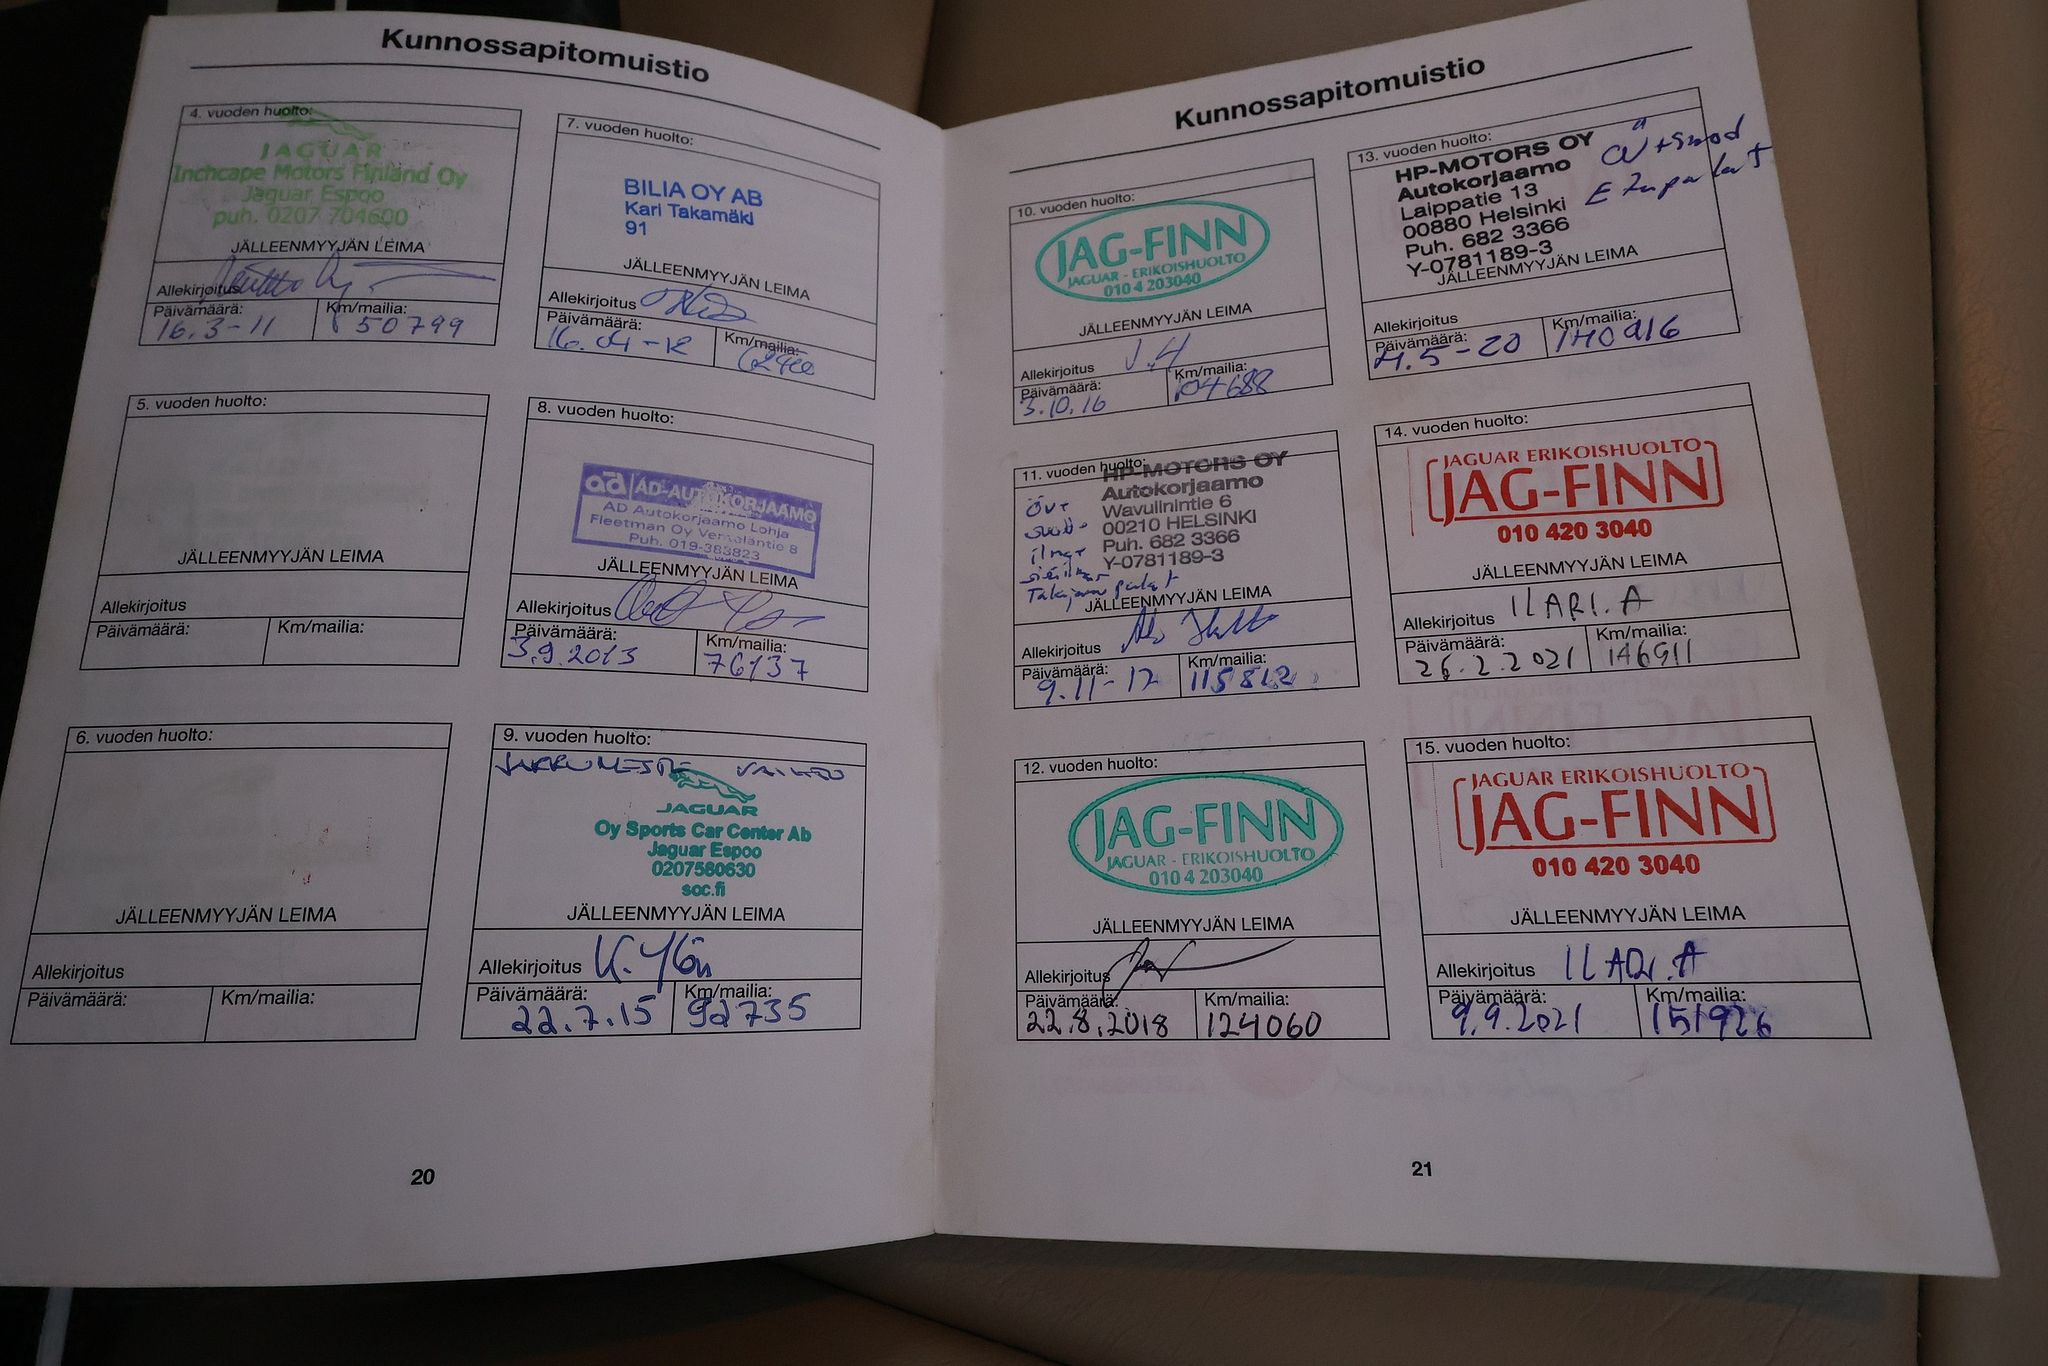 Kunnossapitomuistio
4. vuoden huolto:
JAGUAR
Inchcape Motors Finland Oy
Jaguar Espoo
puh. 0207 704600
JÄLLEENMYYJÄN LEIMA
Allekirjoitus
Päivämäärä: Km/mailia:
16.3-11 50799
5. vuoden huolto:
JÄLLEENMYYJÄN LEIMA
Allekirjoitus
Päivämäärä: Km/mailia:
6. vuoden huolto:
JÄLLEENMYYJÄN LEIMA
Allekirjoitus
Päivämäärä: Km/mailia:
7. vuoden huolto:
BILIA OY AB
Kari Takamäki
91
JÄLLEENMYYJÄN LEIMA
Allekirjoitus
Päivämäärä: Km/mailia:
16.04-12
8. vuoden huolto:
ad AD-AUTOKORJAAMO
AD Autokorjaamo Lohja
Fleetman Oy Ventolantie 8
Puh. 019-383823
JÄLLEENMYYJÄN LEIMA
Allekirjoitus
Päivämäärä: Km/mailia:
3.9.2013 76137
9. vuoden huolto:
JARRUNESTE VAIHTO
JAGUAR
Oy Sports Car Center Ab
Jaguar Espoo
0207580630
scc.fi
JÄLLEENMYYJÄN LEIMA
Allekirjoitus
Päivämäärä: Km/mailia:
22.7.15 92735
20
Kunnossapitomuistio
10. vuoden huolto:
JAG-FINN
JAGUAR - ERIKOISHUOLTO
010 4 203040
JÄLLEENMYYJÄN LEIMA
Allekirjoitus J.H
Päivämäärä: Km/mailia:
3.10.16 104688
11. vuoden huolto:
HP-MOTORS OY
Autokorjaamo
Wavulinintie 6
00210 HELSINKI
Puh. 682 3366
Y-0781189-3
JÄLLEENMYYJÄN LEIMA
Allekirjoitus
Päivämäärä: Km/mailia:
9.11-17 115812
12. vuoden huolto:
JAG-FINN
JAGUAR - ERIKOISHUOLTO
010 4 203040
JÄLLEENMYYJÄN LEIMA
Allekirjoitus
Päivämäärä: Km/mailia:
22.8.2018 124060
13. vuoden huolto:
HP-MOTORS OY
Autokorjaamo
Laippatie 13
00880 Helsinki
Puh. 682 3366
Y-0781189-3
JÄLLEENMYYJÄN LEIMA
Allekirjoitus
Päivämäärä: Km/mailia:
4.5-20 140916
14. vuoden huolto:
JAGUAR ERIKOISHUOLTO
JAG-FINN
010 420 3040
JÄLLEENMYYJÄN LEIMA
Allekirjoitus ILARI.A
Päivämäärä: Km/mailia:
26.2.2021 146911
15. vuoden huolto:
JAGUAR ERIKOISHUOLTO
JAG-FINN
010 420 3040
JÄLLEENMYYJÄN LEIMA
Allekirjoitus ILARI.A
Päivämäärä: Km/mailia:
9.9.2021 151926
21